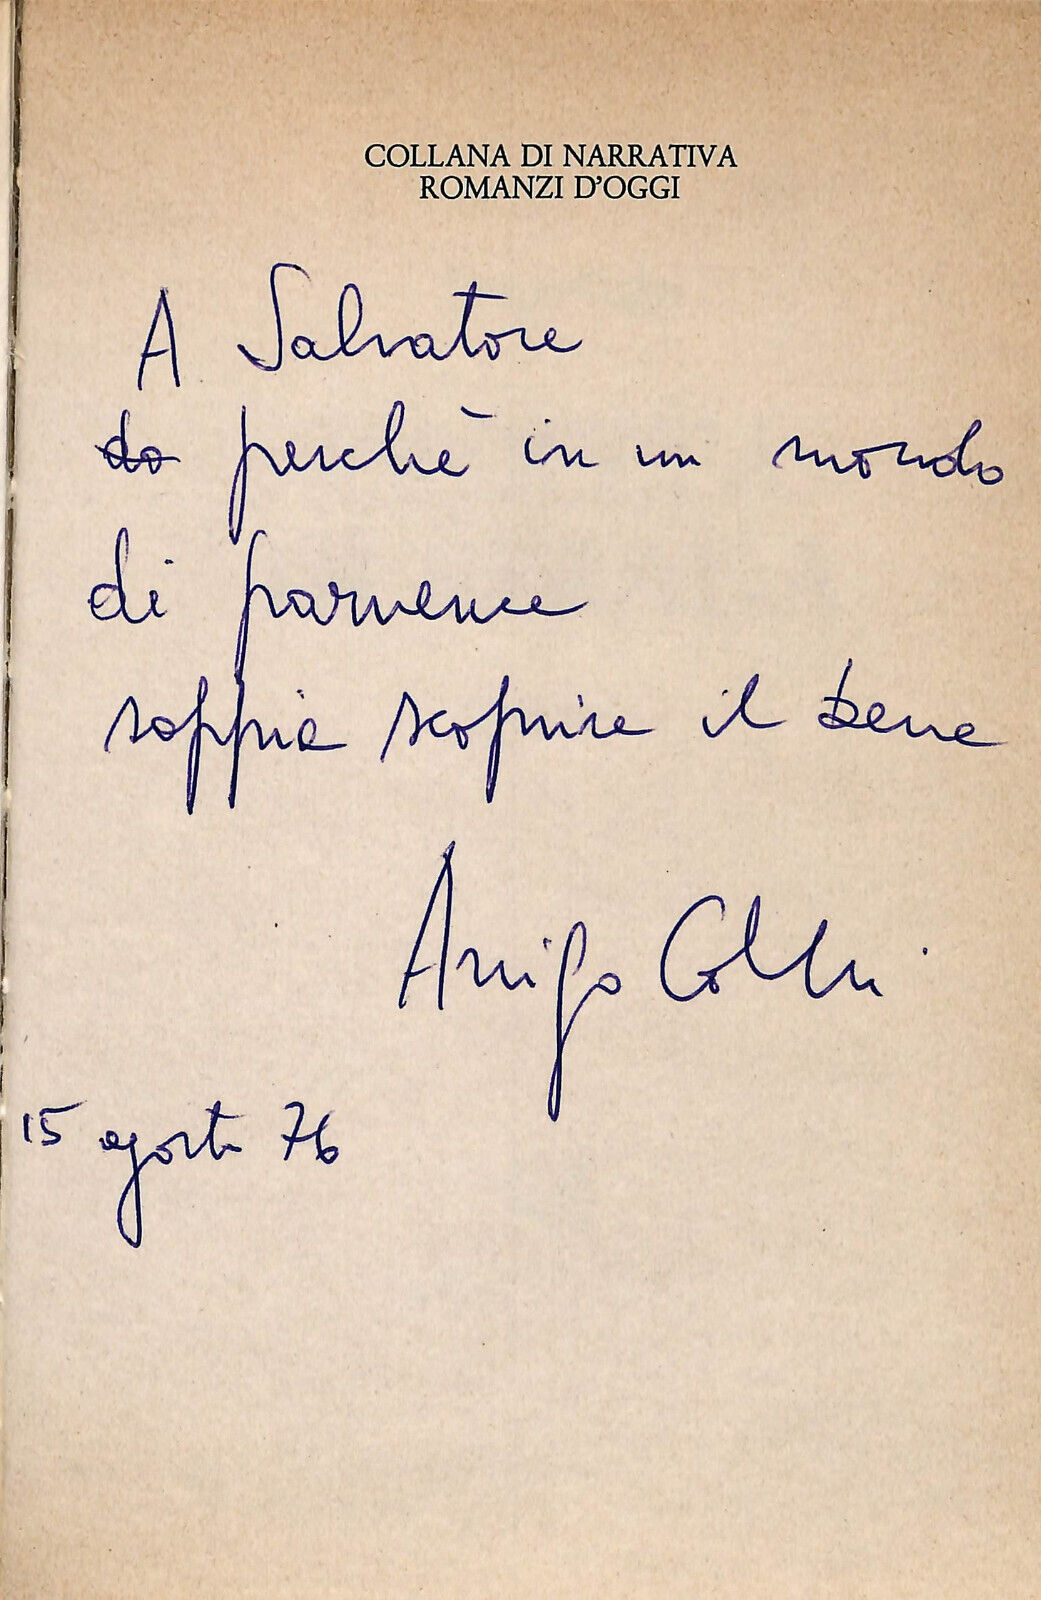 COLLANA DI NARRATIVA
ROMANZI D'OGGI
A Salvatore
do perchè in un mondo
di parvenze
sappia scoprire il bene
Arrigo Colli
15 agosto 76